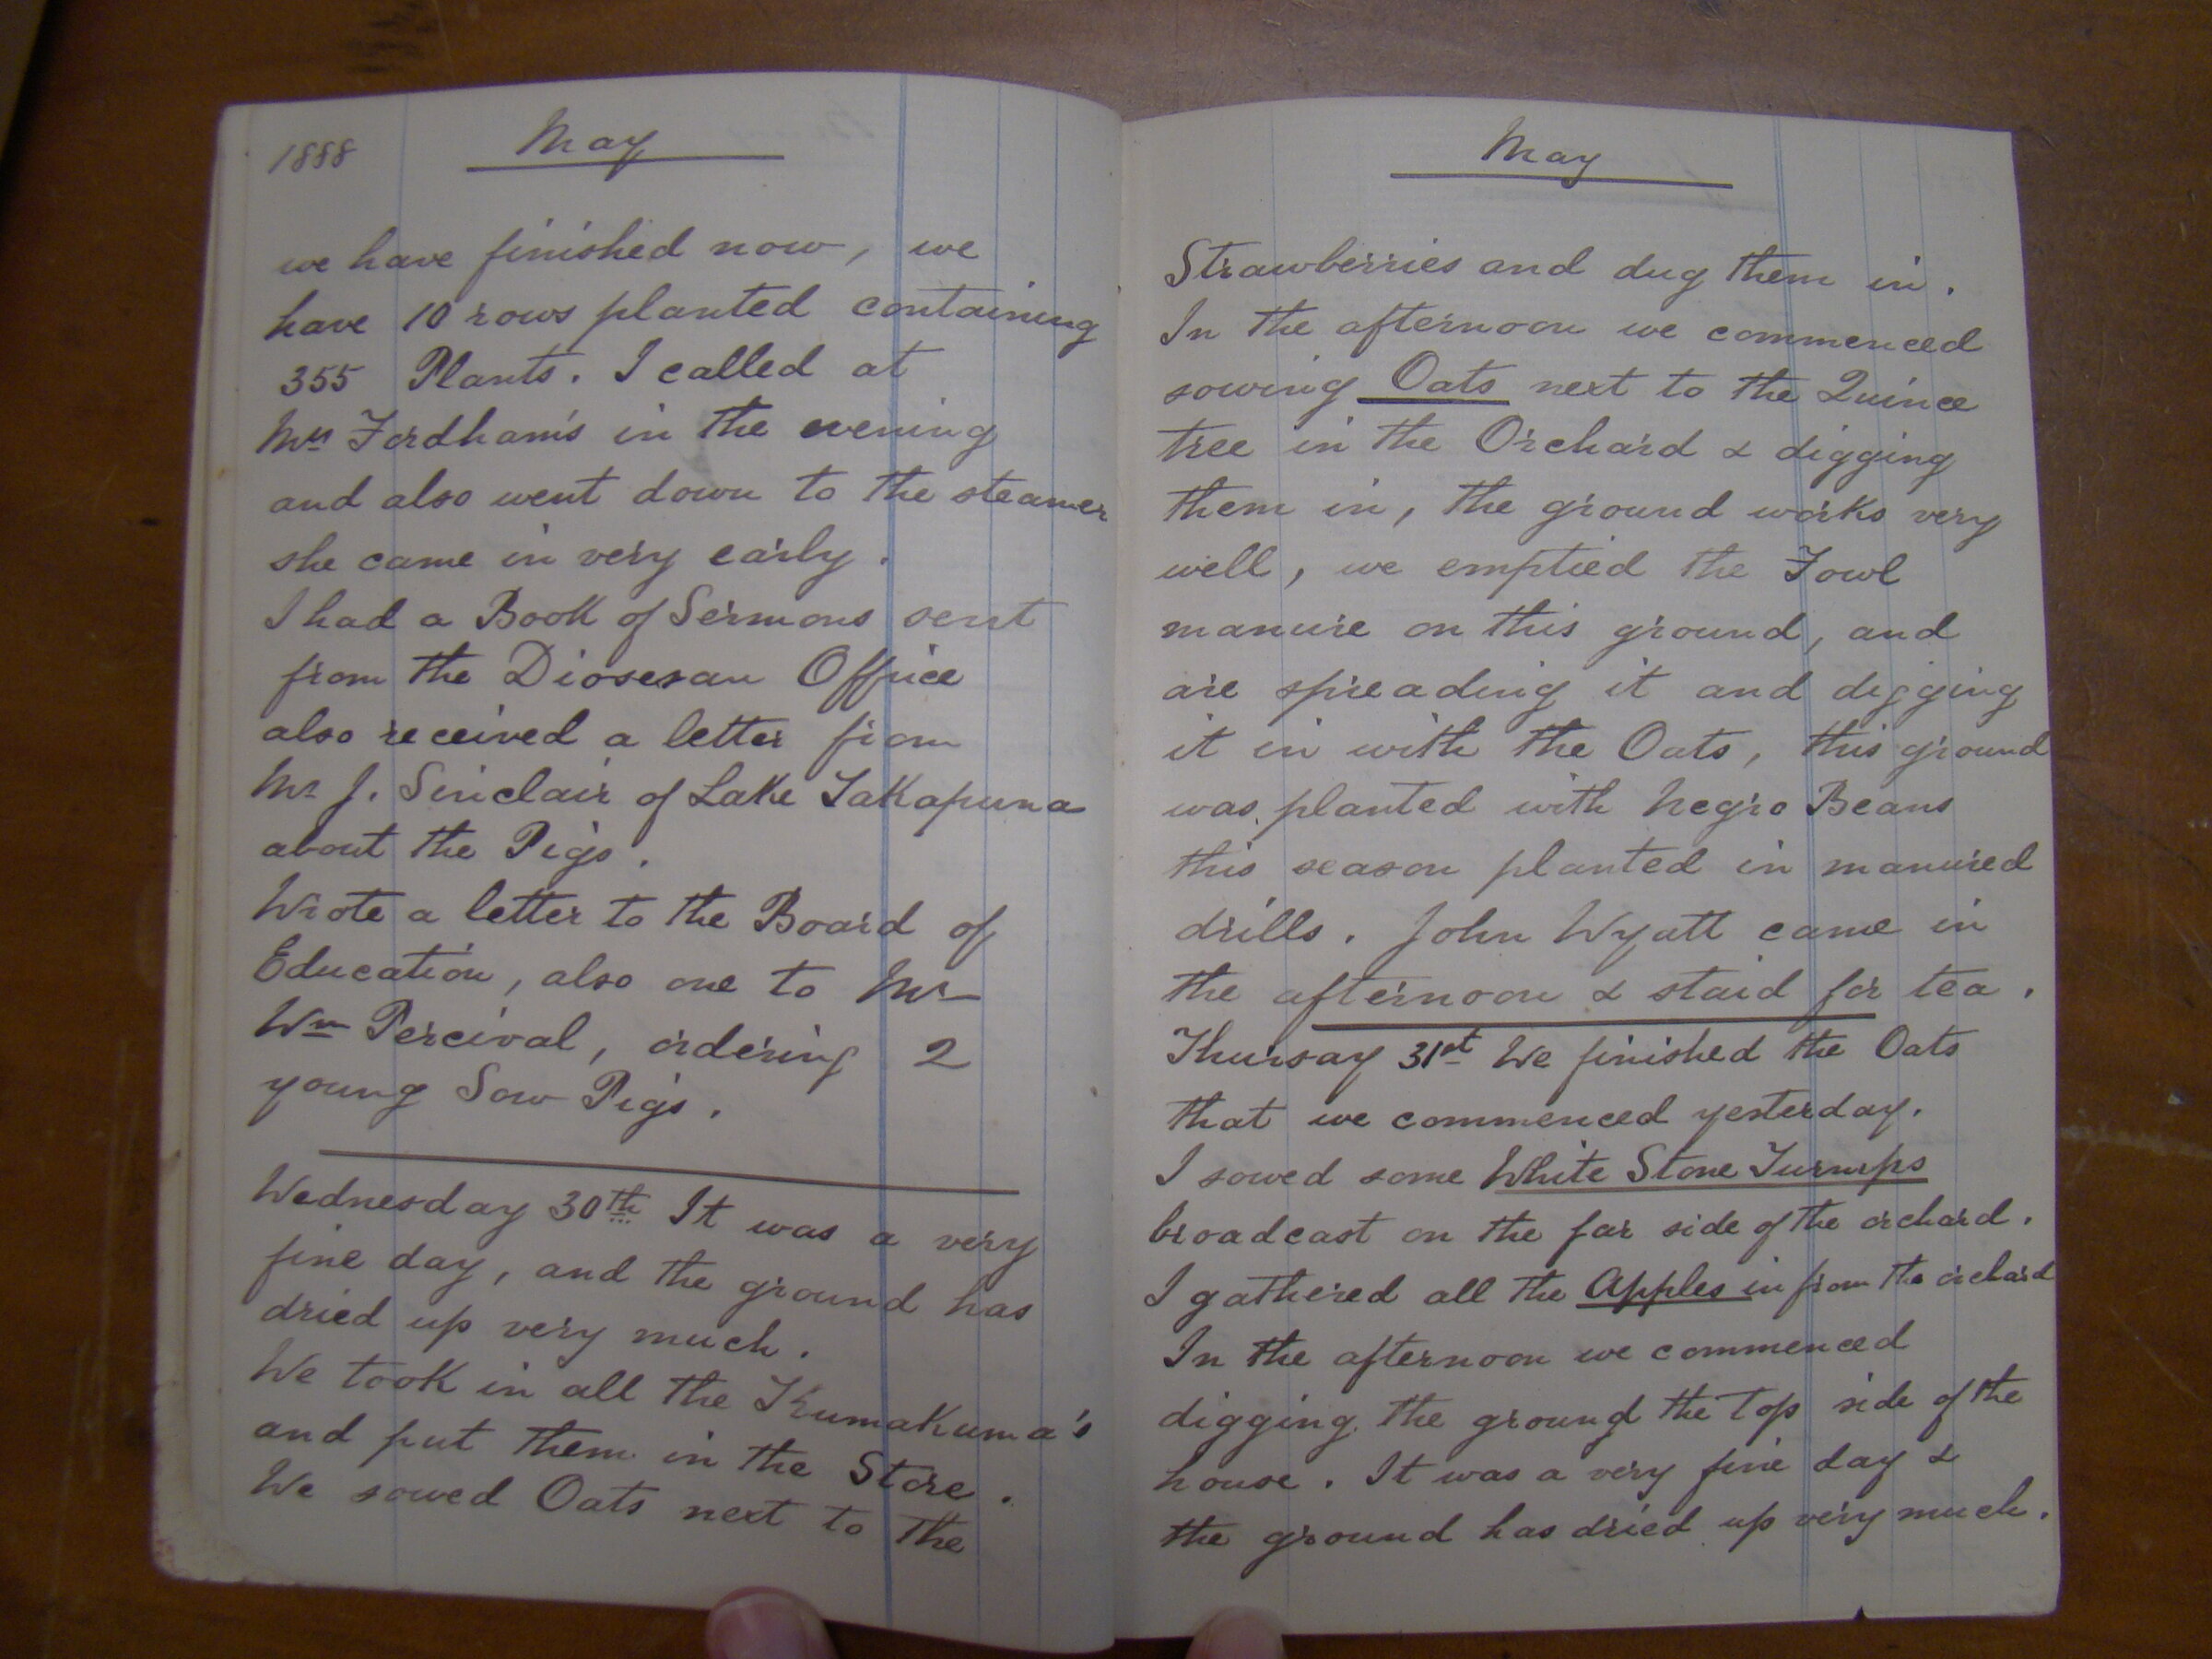 1888 May
we have finished now, we
have 10 rows planted containing
355 Plants. I called at
Mrs Fordham's in the evening
and also went down to the steamer
she came in very early.
I had a Book of Sermons sent
from the Diosesan Office
also received a letter from
Mr J. Sinclair of Lake Takapuna
about the Pigs.
Wrote a letter to the Board of
Education, also one to Mr
Wm Percival, ordering 2
young Sow Pigs.
Wednesday 30th It was a very
fine day, and the ground has
dried up very much.
We took in all the KumaKuma's
and put them in the Store.
We sowed Oats next to the
May
Strawberries and dug them in.
In the afternoon we commenced
sowing Oats next to the Quince
tree in the Orchard & digging
them in, the ground works very
well, we emptied the Fowl
manure on this ground, and
are spreading it and digging
it in with the Oats, this ground
was planted with Negro Beans
this season planted in manured
drills. John Wyatt came in
the afternoon & staid for tea.
Thursay 31st We finished the Oats
that we commenced yesterday.
I sowed some White Stone Turnips
broadcast on the far side of the orchard.
I gathered all the Apples in from the orchard
In the afternoon we commenced
digging the ground the Top side of the
house. It was a very fine day &
the ground has dried up very much.